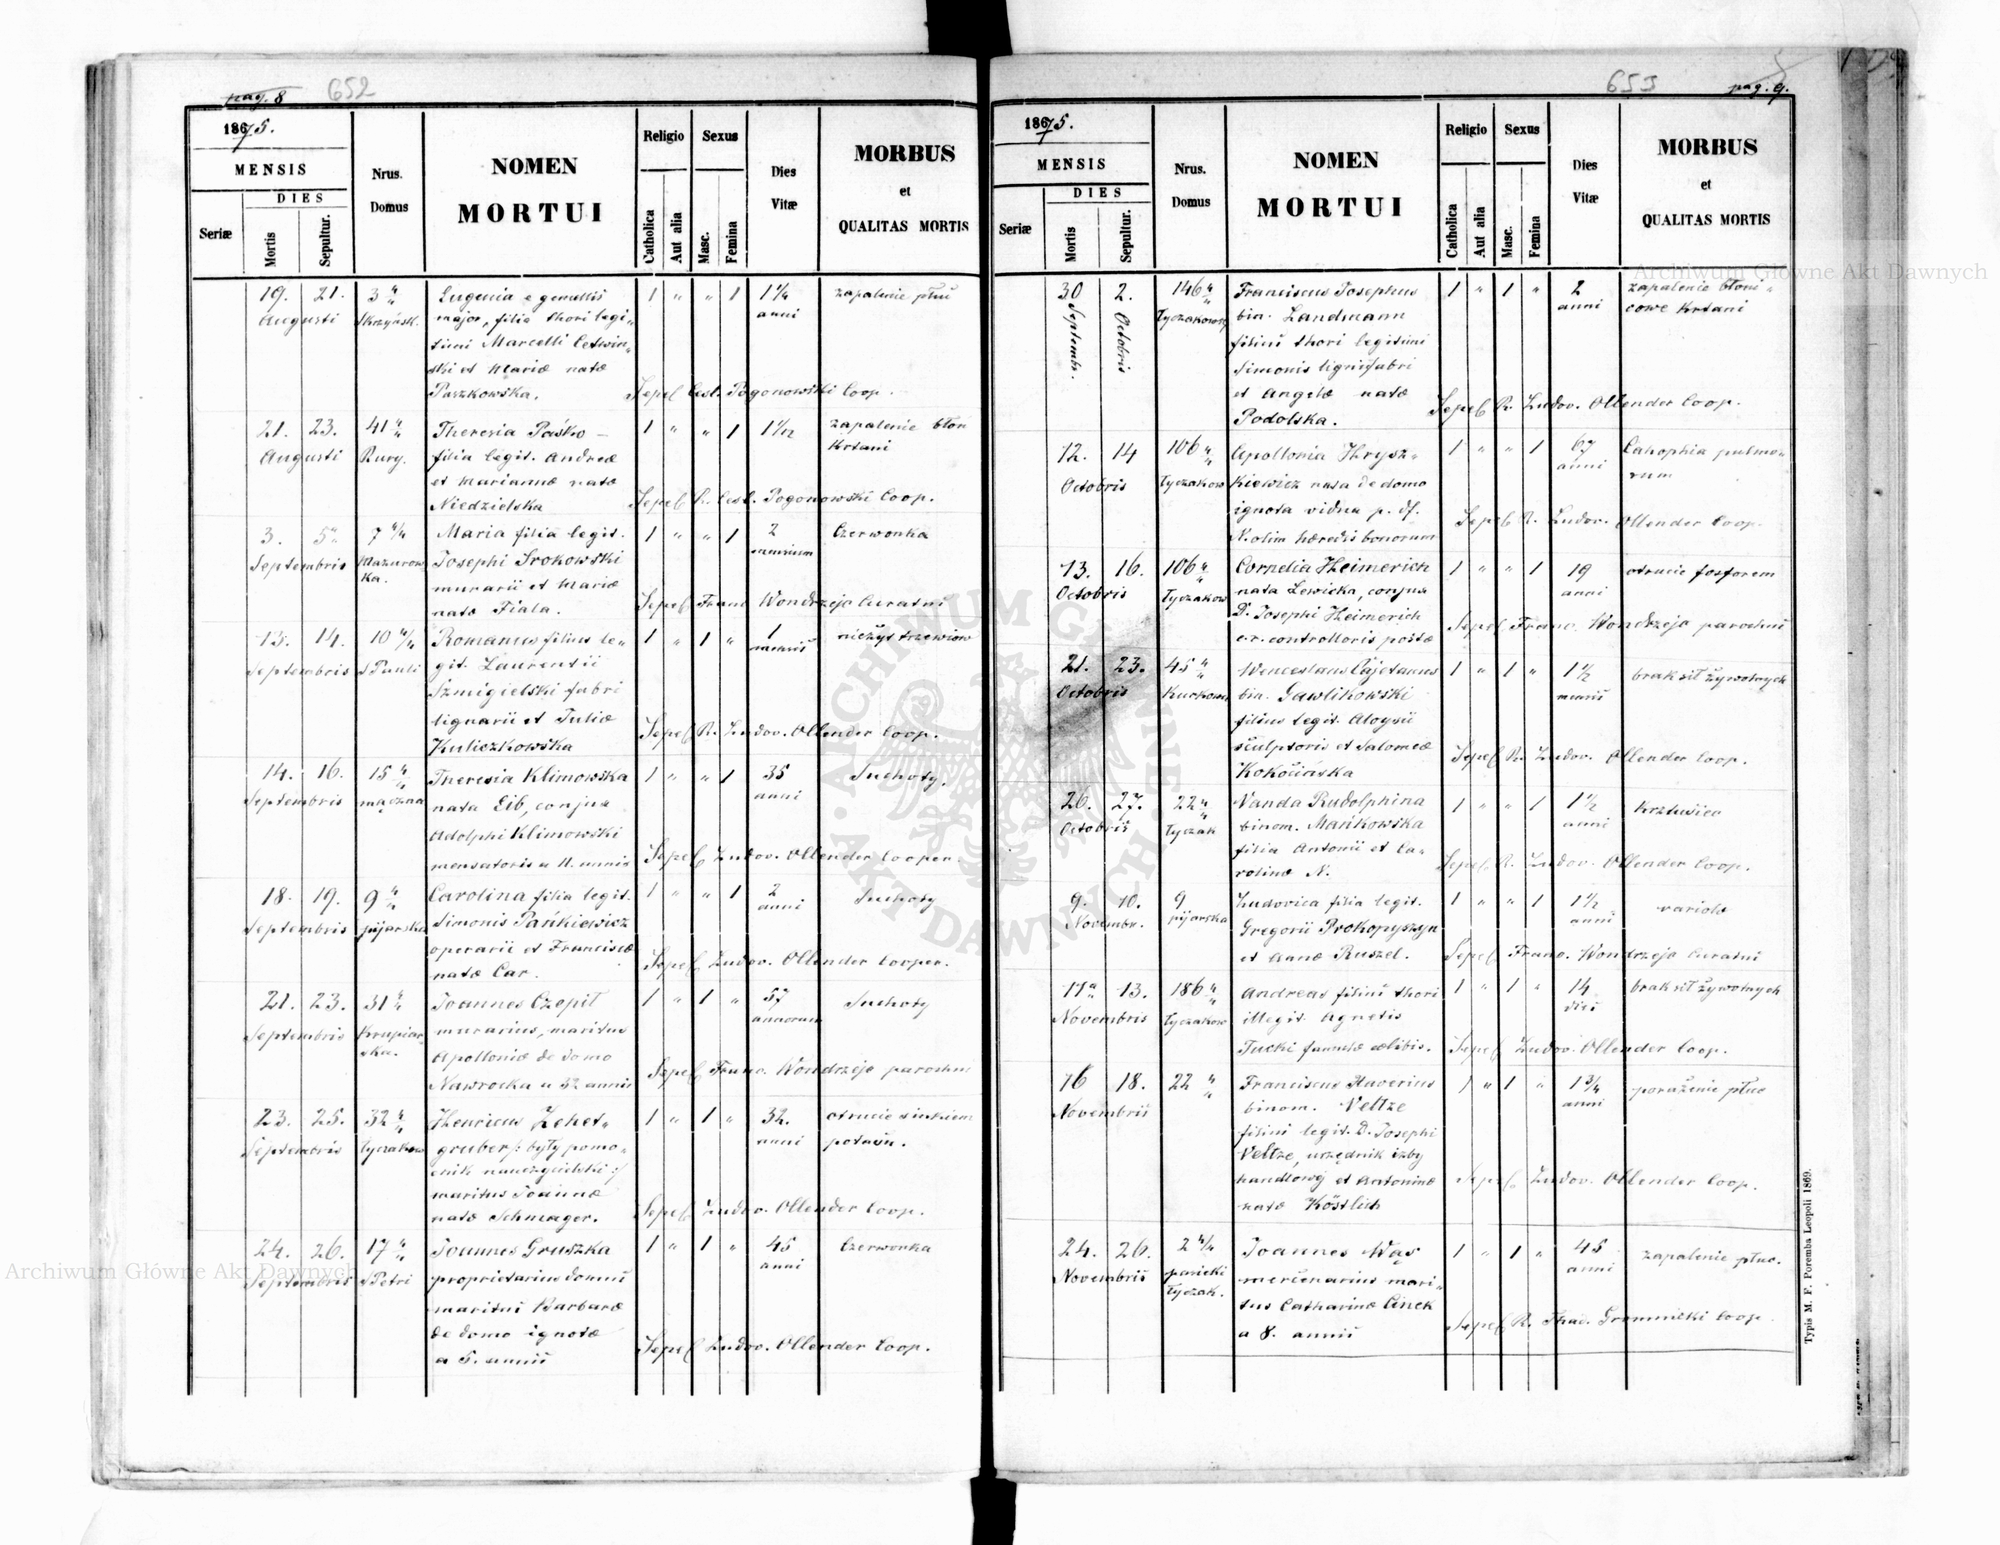 pag. 8
652
1875.
MENSIS
DIES
Seriæ
Mortis
Sepultur.
Nrus.
Domus
NOMEN
MORTUI
Religio
Catholica
Aut alia
Sexus
Masc.
Femina
Dies
Vitæ
MORBUS
et
QUALITAS MORTIS
19. 21. 3 Eugenia e gemellis 1 " " 1 1¼ zapalenie płuc
Augusti Skrzyńsk. major, filia thori legi- anni
timi Marcelli Cetwin-
ski et Mariæ natæ
Paszkowska. Sepel Cesl. Pogonowski Coop.
21. 23. 41 Theresia Paśko 1 " " 1 1 1/12 zapalenie błon
Augusti Rury. filia legit. Andreæ krtani
et Mariannæ natæ
Niedzielska Sepel R. Cesl. Pogonowski Coop.
3. 5. 7 4/4 Maria filia legit. 1 " " 1 2 Czerwonka
Septembris Mazurow- Josephi Srokowski mensium
ka. murarii et Mariæ
natæ Fiala. Sepel Franc Wondrzejc Curatus
13. 14. 10 4/4 Romanus filius le- 1 " 1 " 1 nieżyt trzewiow
Septembris S Pauli git. Laurentii mensis
Szmigielski fabri
lignarii et Juliæ
Kuliczkowska Sepel R. Ludov. Ollender Coop.
14. 16. 15 Theresia Klimowska 1 " " 1 35 Suchoty.
Septembris mączna nata Eib, conjux anni
Adolphi Klimowski
mensatoris a 11. annis Sepel Ludov. Ollender Cooper.
18. 19. 9 Carolina filia legit. 1 " " 1 2 Suchoty
Septembris pijarska Simonis Pańkiewicz anni
operarii et Franciscæ
natæ Car. Sepel Ludov. Ollender Cooper.
21. 23. 31 Joannes Czopil 1 " 1 " 57 Suchoty
Septembris Krupiar- murarius, maritus annorum
ska. Apolloniæ de domo
Nawrocka a 32 annis Sepel Franc. Wondrzejc parochus
23. 25. 32 Henricus Zehet- 1 " 1 " 32. otrucie sinkiem
Septembris Łyczakow gruber /: były pomo- anni potasu.
cnik nauczycielski :/
maritus Joannæ
natæ Schmager. Sepel Ludov. Ollender Coop.
24. 26. 17 Joannes Gruszka 1 " 1 " 45 Czerwonka
Septembris S Petri proprietarius domus anni
maritus Barbaræ
de domo ignotæ
a 5. annis Sepel Ludov. Ollender Coop.
653
pag. 9.
1875.
MENSIS
DIES
Seriæ
Mortis
Sepultur.
Nrus.
Domus
NOMEN
MORTUI
Religio
Catholica
Aut alia
Sexus
Masc.
Femina
Dies
Vitæ
MORBUS
et
QUALITAS MORTIS
30 2. 146 Franciscus Josephus 1 " 1 " 2 zapalenie błoni-
Septembr. Octobris Łyczakowsk bin. Landmann anni cowe krtani
filius thori legitimi
Simonis lignifabri
et Angelæ natæ
Podolska. Sepel R. Ludov. Ollender Coop.
12. 14 106 Apollonia Hrysz- 1 " " 1 67 Cahophia pulmo-
Octobris Łyczakow kiewicz nata de domo anni rum
ignota vidua p. df.
N. olim hæredis bonorum Sepel R. Ludov. Ollender Coop.
13. 16. 106 Cornelia Heimerich 1 " " 1 19 otrucie fosforem
Octobris Łyczakow nata Lewicka, conjux anni
D. Josephi Heimerich
c.r. controlloris postæ Sepel Franc. Wondrzejc parochus
21. 23. 45 Wenceslaus Cajetanus 1 " 1 " 1½ brak sił żywotnych
Octobris bin. Gawlikowski mensis
filius legit. Aloysii
sculptoris et Salomeæ
Kokócińska Sepel R. Ludov. Ollender Coop.
26. 27. 22 Vanda Rudolphina 1 " " 1 1½ krztusiec
Octobris Łyczak binom. Mańkowska anni
filia Antonii et Ca-
rolinæ N. Sepel R. Ludov. Ollender Coop.
9. 10. 9 Ludovica filia legit. 1 " " 1 1½ variolæ
Novembr. pijarska Gregorii Prokopyszyn anni
et Annæ Ruszel. Sepel Franc. Wondrzejc Curatus
11. 13. 186 Andreas filius thori 1 " 1 " 14 brak sił żywotnych
Novembris Łyczakow illegit. Agnetis dies
Tucki famulæ cælibis. Sepel Ludov. Ollender Coop.
16 18. 22 Franciscus Xaverius 1 " 1 " 1¾ porażenie płuc
Novembris binom. Veltze anni
filius legit. D. Josephi
Veltze, urzędnik izby
handlowéj et Antoninæ
natæ Köstlich Sepel Ludov. Ollender Coop.
24. 26. 2 4/4 Joannes Wąs 1 " 1 " 45 zapalenie płuc.
Novembris Łyczak. mercenarius mari- anni
tus Catharinæ Cinek
a 8. annis Sepel R. Thad. Gromnicki Coop.
Typis M. F. Poremba Leopoli 1869.
Archiwum Główne Akt Dawnych
Archiwum Główne Akt Dawnych
ARCHIWUM GŁÓWNE AKT DAWNYCH